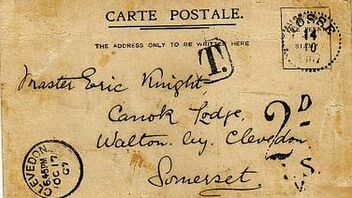 CARTE POSTALE.
THE ADDRESS ONLY TO BE WRITTEN HERE
T.
14
10
Master Eric Knight
Canok Lodge,
Walton by Clevedon
Somerset
2D
CLEVEDON
6.45PM
OC 17
07